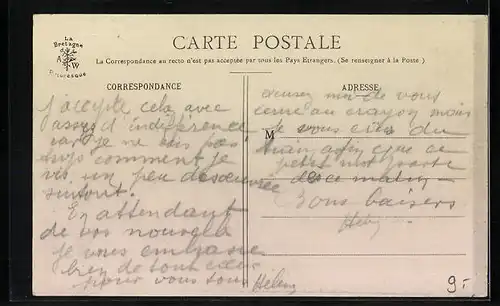 La
Bretagne
A W
Pittoresque
CARTE POSTALE
La Correspondance au recto n'est pas acceptée par tous les Pays Etrangers. (Se renseigner à la Poste)
CORRESPONDANCE
j'accepte cela avec
assez d'indifférence
car je ne sais pas
trop comment je
vis un peu désœuvrée
surtout.
En attendant
de vos nouvelles
je vous embrasse
bien de tout cœur
pour vous tous
Hélène
ADRESSE
M
excusez moi de vous
écrire au crayon mais
je vous écris du
que ce
petit mot parte
dès ce matin
Bons baisers
9.-